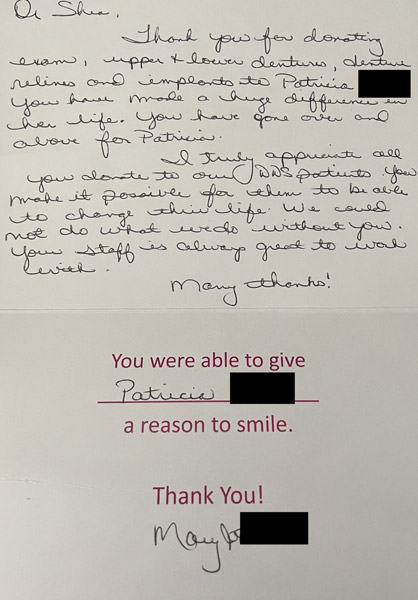 Dr Shea,
Thank you for donating
exam, upper & lower dentures, denture
relines and implants to Patricia
You have made a huge difference in
her life. You have gone over and
above for Patricia.
I truly appreciate all
you donate to our DDS patients. You
make it possible for them to be able
to change their life. We could
not do what we do without you.
Your staff is always great to work
with.
Many thanks!
You were able to give
Patricia
a reason to smile.
Thank You!
Mary